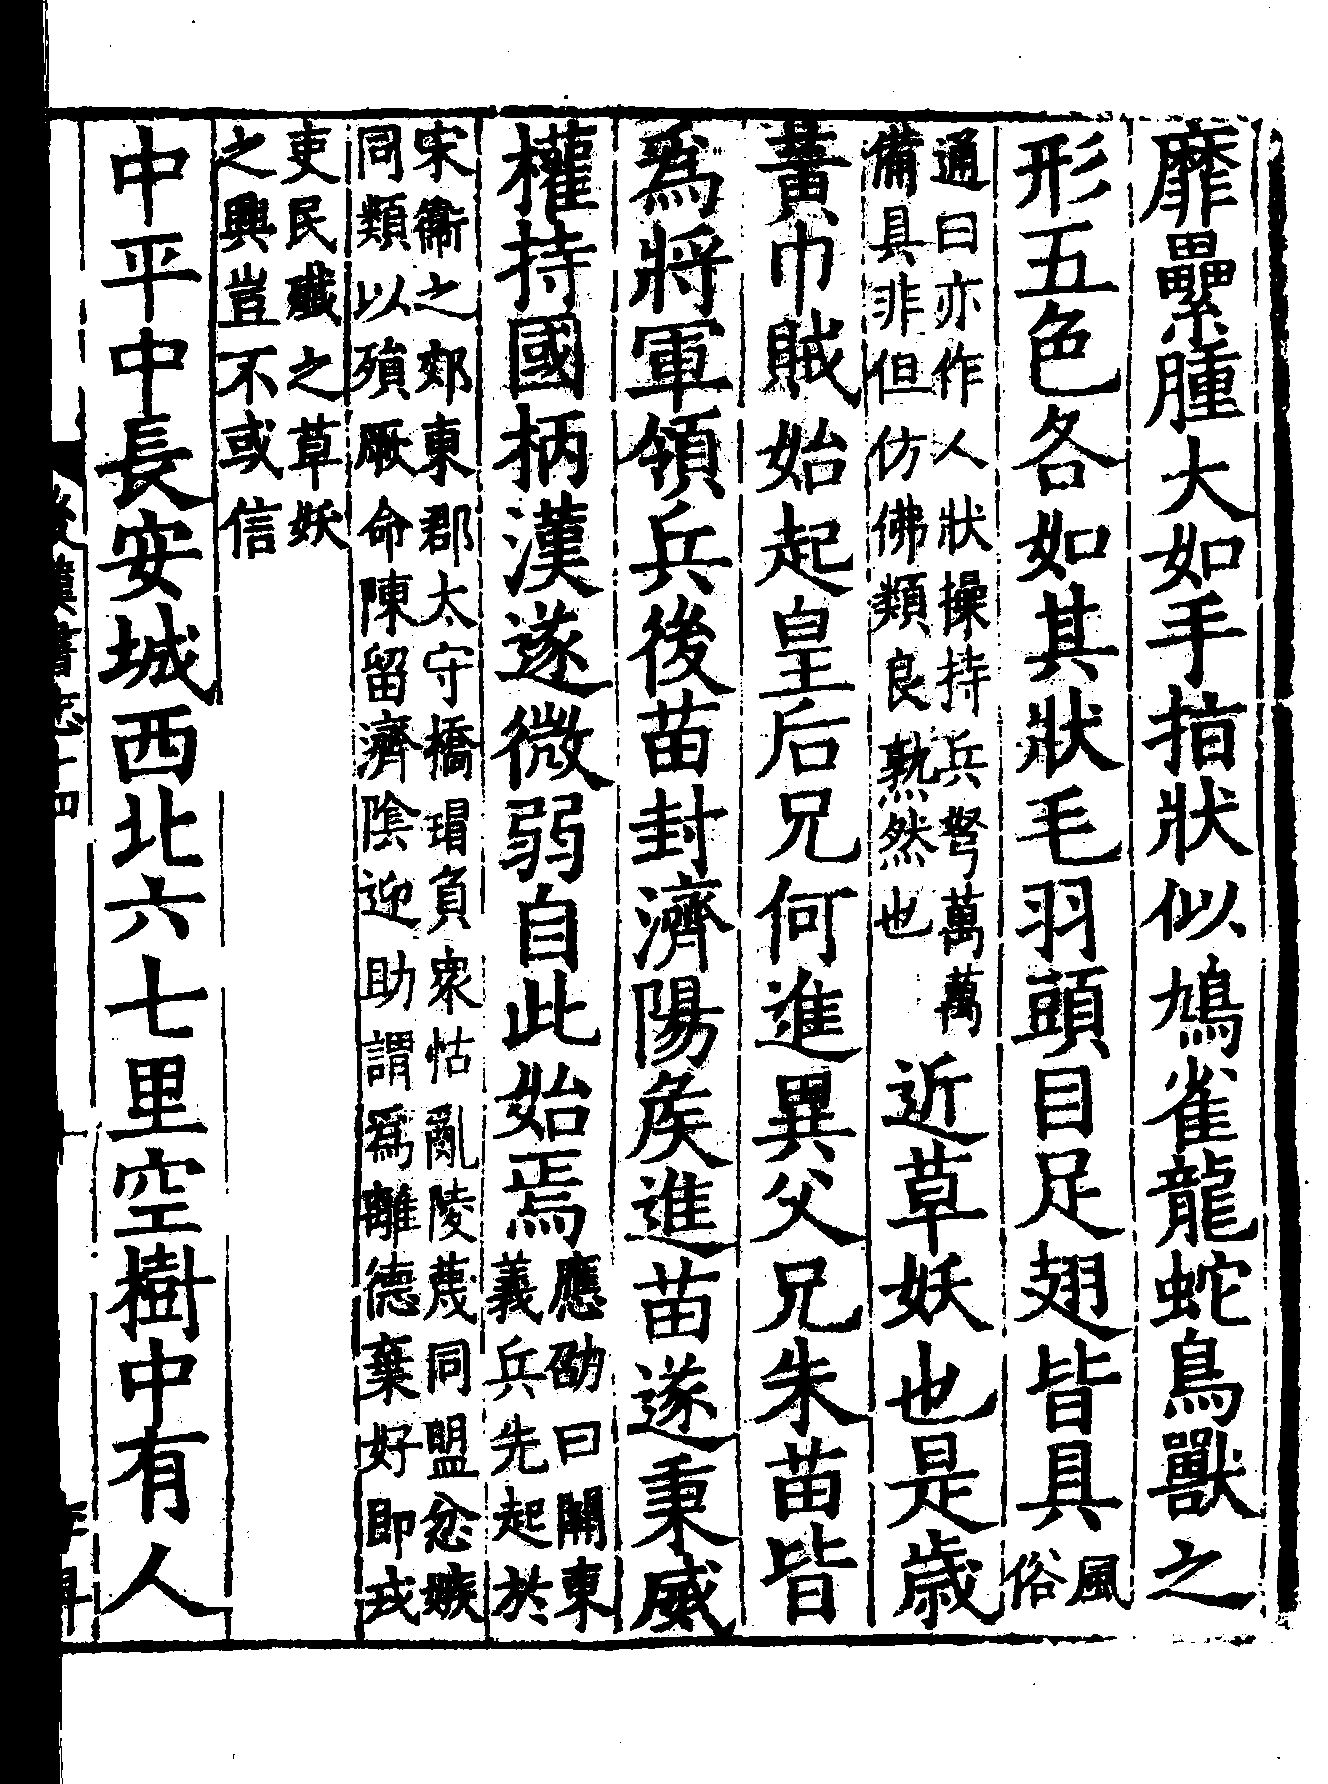 靡纍腫大如手指狀似鳩雀龍蛇鳥獸之
形五色各如其狀毛羽頭目足翅皆具風俗
通曰亦作人狀操持兵弩萬萬備具非但仿佛類良熟然也近草妖也是歲
黃巾賊始起皇后兄何進異父兄朱苗皆
爲將軍領兵後苗封濟陽矦進苗遂秉威
權持國柄漢遂微弱自此始焉應劭曰關東義兵先起於
宋衞之郊東郡太守橋瑁負衆怙亂陵蔑同盟忿嫉
同類以殞厥命陳留濟陰迎助謂爲離德棄好即戎
吏民殲之草妖之興豈不或信
中平中長安城西北六七里空樹中有人
後漢書志十四